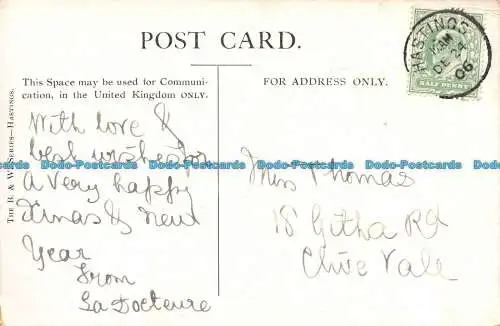 POST CARD.
HASTINGS
DE 24
06
HALFPENNY
This Space may be used for Communi-
cation, in the United Kingdom ONLY.
FOR ADDRESS ONLY.
THE B. & W. SERIES—HASTINGS.
With love &
best wishes for
a very happy
Xmas & new
Year
from
La Docteure
Miss Thomas
18 Githa Rd
Clive Vale
Dodo-Postcards Dodo-Postcards Dodo-Postcards Dodo-Postcards Dodo-Postcards